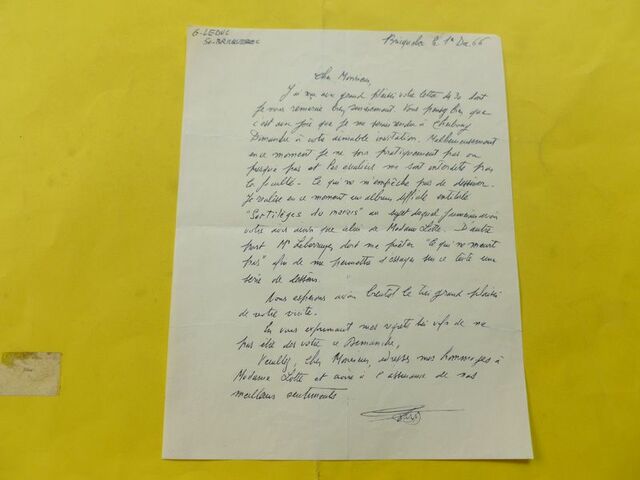 G-LEDUC
50-BRICQUEBEC
Bricquebec le 1er Dec 66
Cher Monsieur,
J'ai reçu avec grand plaisir votre lettre du 30 dont
je vous remercie bien sincèrement. Vous pensez bien que
c'est avec joie que je me serais rendu à Cherbourg
Dimanche à votre aimable invitation. Malheureusement
en ce moment je ne sors pratiquement pas ou
presque pas et les sont interdits par
la faculté. Ce qui ne m'empêche pas de dessiner.
Je réalise en ce moment un album intitulé
"Sortilèges du marais" au sujet duquel j'aimerais avoir
votre avis ainsi que celui de Madame Lotte. D'autre
part Mr doit me prêter "Ce qui ne meurt
pas" afin de me permettre d'essayer sur ce texte une
série de dessins.
Nous espérons avoir bientôt le très grand plaisir
de votre visite.
En vous exprimant mes regrets très vifs de ne
pas être des vôtres ce Dimanche,
Veuillez, cher Monsieur, adresser mes hommages à
Madame Lotte et croire à l'assurance de nos
meilleurs sentiments